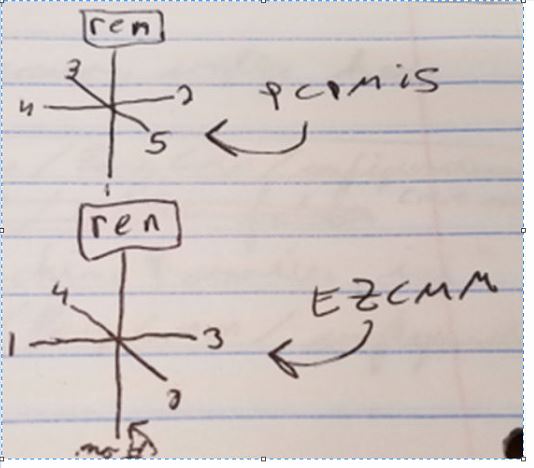 ren
3
4 2
PCPMIS
5
1
ren
4
EZCMM
1 3
2